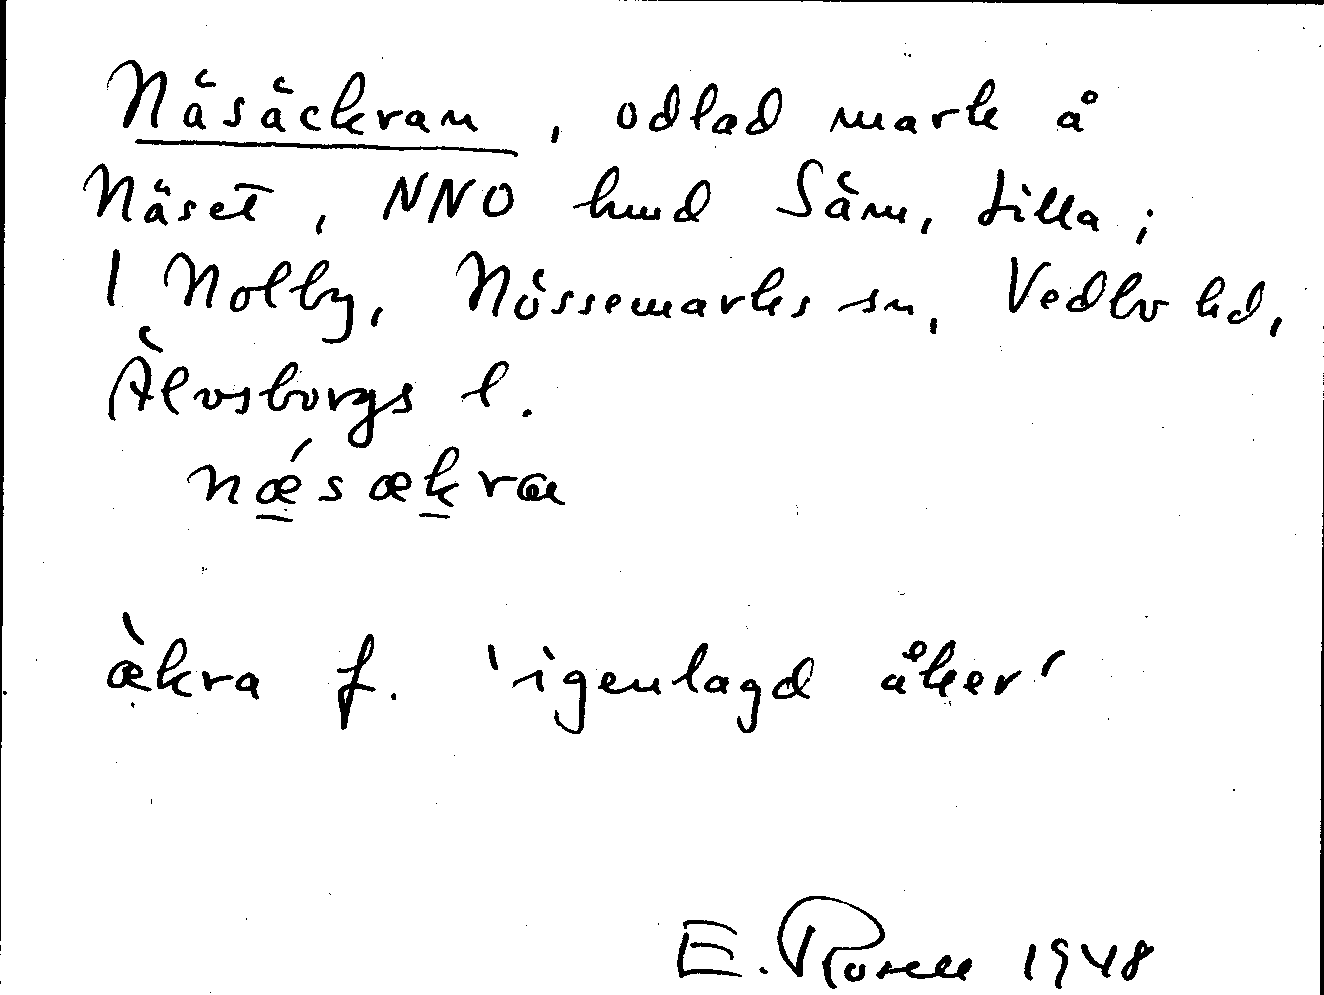 Näsäckran, odlad mark å
Näset, NNO hmd Säm, tilla;
1 Nolby, Nössemarks sn, Vedbo hd,
Älvsborgs l.
nǽsækra
ækra f. 'igenlagd åker'
E. Rosell 1948